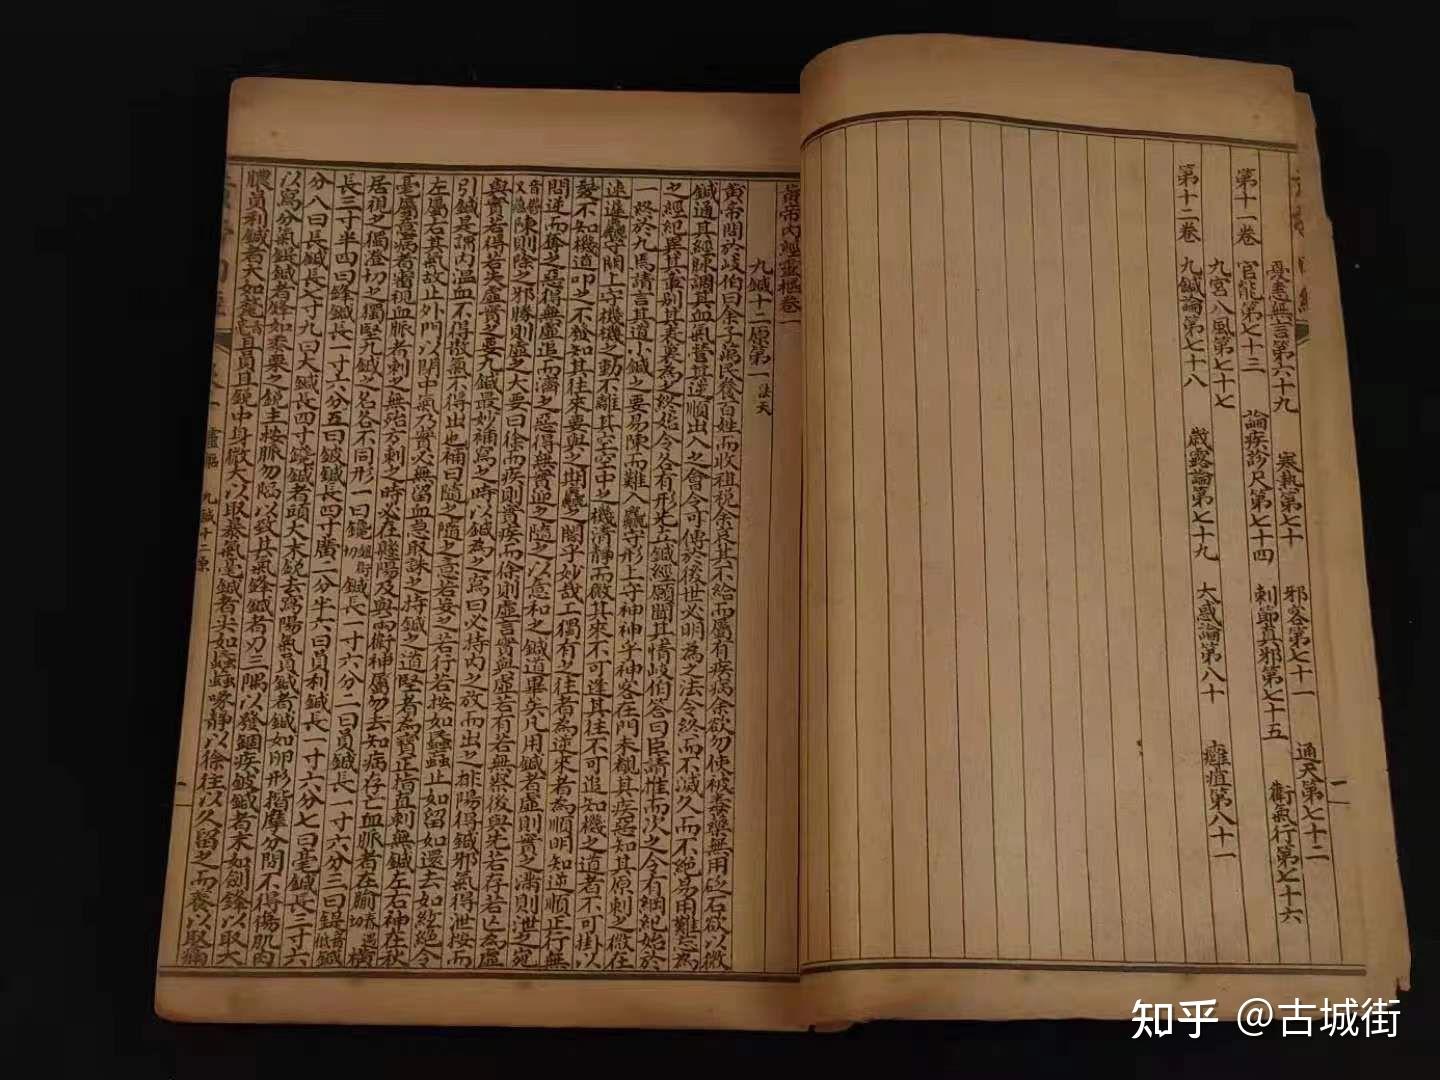 憂恚無言第六十九 寒熱第七十 邪客第七十一 通天第七十二
第十一卷 官能第七十三 論疾診尺第七十四 刺節真邪第七十五 衛氣行第七十六
九宮八風第七十七
第十二卷 九鍼論第七十八 歲露論第七十九 大惑論第八十 癰疽第八十一
黃帝內經靈樞卷一
九鍼十二原第一 法天
黃帝問於歧伯曰余子萬民養百姓而收租稅余哀其不給而屬有疾病余欲勿使被毒藥無用砭石欲以微
鍼通其經脉調其血氣營其逆順出入之會令可傳於後世必明為之法令終而不滅久而不絕易用難忘為
之經紀異其章別其表裏為之終始令各有形先立鍼經願聞其情歧伯答曰臣請推而次之令有綱紀始於
一終於九焉請言其道小鍼之要易陳而難入麤守形上守神神乎神客在門未覩其疾惡知其原刺之微在
速遲麤守關上守機機之動不離其空空中之機清靜而微其來不可逢其往不可追知機之道者不可掛以
髮不知機道叩之不發知其往來要與之期麤之闇乎妙哉工獨有之往者為逆來者為順明知逆順正行無
問逆而奪之惡得無虛追而濟之惡得無實迎之隨之以意和之鍼道畢矣凡用鍼者虛則實之滿則泄之宛
陳則除之邪勝則虛之大要曰徐而疾則實疾而徐則虛言實與虛若有若無察後與先若存若亡為虛
與實若得若失虛實之要九鍼最妙補寫之時以鍼為之寫曰必持內之放而出之排陽得鍼邪氣得泄按而
引鍼是謂內溫血不得散氣不得出也補曰隨之隨之意若妄之若行若按如蟁蝱止如留如還去如絃絕令
左屬右其氣故止外門以閉中氣乃實必無留血急取誅之持鍼之道堅者為寶正指直刺無鍼左右神在秋
毫屬意病者審視血脈者刺之無殆方刺之時必在懸陽及與兩衛神屬勿去知病存亡血脈者在腧橫
居視之獨澄切之獨堅九鍼之名各不同形一曰鑱鍼長一寸六分二曰員鍼長一寸六分三曰鍉鍼
長三寸半四曰鋒鍼長一寸六分五曰鈹鍼長四寸廣二分半六曰員利鍼長一寸六分七曰毫鍼長三寸六
分八曰長鍼長七寸九曰大鍼長四寸鑱鍼者頭大末銳去寫陽氣員鍼者鍼如卵形揩摩分間不得傷肌肉
以寫分氣鍉鍼者鋒如黍粟之銳主按脈勿陷以致其氣鋒鍼者刃三隅以發錮疾鈹鍼者末如劍鋒以取大
膿員利鍼者大如氂且員且銳中身微大以取暴氣毫鍼者尖如蟁蝱喙靜以徐往以久留之而養以取痛
靈樞 九鍼十二原
知乎 @古城街